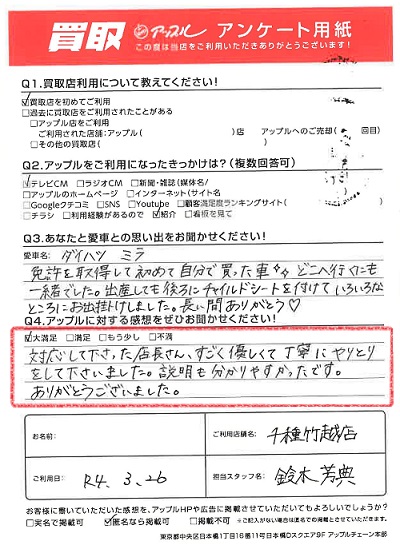 買取 アップル アンケート用紙
この度は当店をご利用いただきありがとうございます!
Q1.買取店利用について教えてください!
☑買取店を初めてご利用
□過去に買取店をご利用されたことがある
□アップル店をご利用
ご利用された店舗:アップル( )店 アップルへのご売却( 回目)
□その他の買取店( )
Q2.アップルをご利用になったきっかけは?(複数回答可)
☑テレビCM □ラジオCM □新聞・雑誌(媒体名/
□アップルのホームページ □インターネット(サイト名
□Googleクチコミ □SNS □Youtube □顧客満足度ランキングサイト( )
□チラシ □利用経験があるので ☑紹介 □看板を見て
Q3.あなたと愛車との思い出をお聞かせください!
愛車名: ダイハツ ミラ
免許を取得して初めて自分で買った車です。どこへ行くにも
一緒でした。出産しても後ろにチャイルドシートを付けていろいろな
ところにお出掛けしました。長い間ありがとう♡
Q4.アップルに対する感想をぜひお聞かせください!
☑大満足 □満足 □もう少し □不満
対応して下さった店長さん、すごく優しくて丁寧にやりとり
をして下さいました。説明も分かりやすかったです。
ありがとうございました。
お名前:
ご利用店舗名: 千種竹越店
ご利用日: R4. 3. 26
担当スタッフ名: 鈴木芳典
お客様に書いていただいた感想を、アップルHPや広告に掲載させていただいてもよろしいでしょうか?
□実名で掲載可 ☑匿名なら掲載可 □掲載不可 ※ご記入がない場合は匿名での掲載とさせていただきます。
東京都中央区日本橋1丁目16番11号日本橋Dスクエア9F アップルチェーン本部